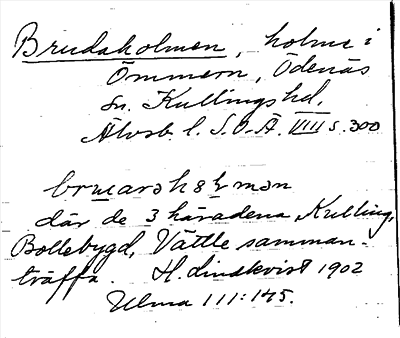 Brudaholmen, holme i
Ömmern, Ödenäs
sn. Kullings hd.
Älvsb. l. S.O-Ä. VIII s. 300
där de 3 häradena, Kulling,
Bollebygd, Vättle samman-
träffa. H. Lindkvist 1902
Ulma 111:145.